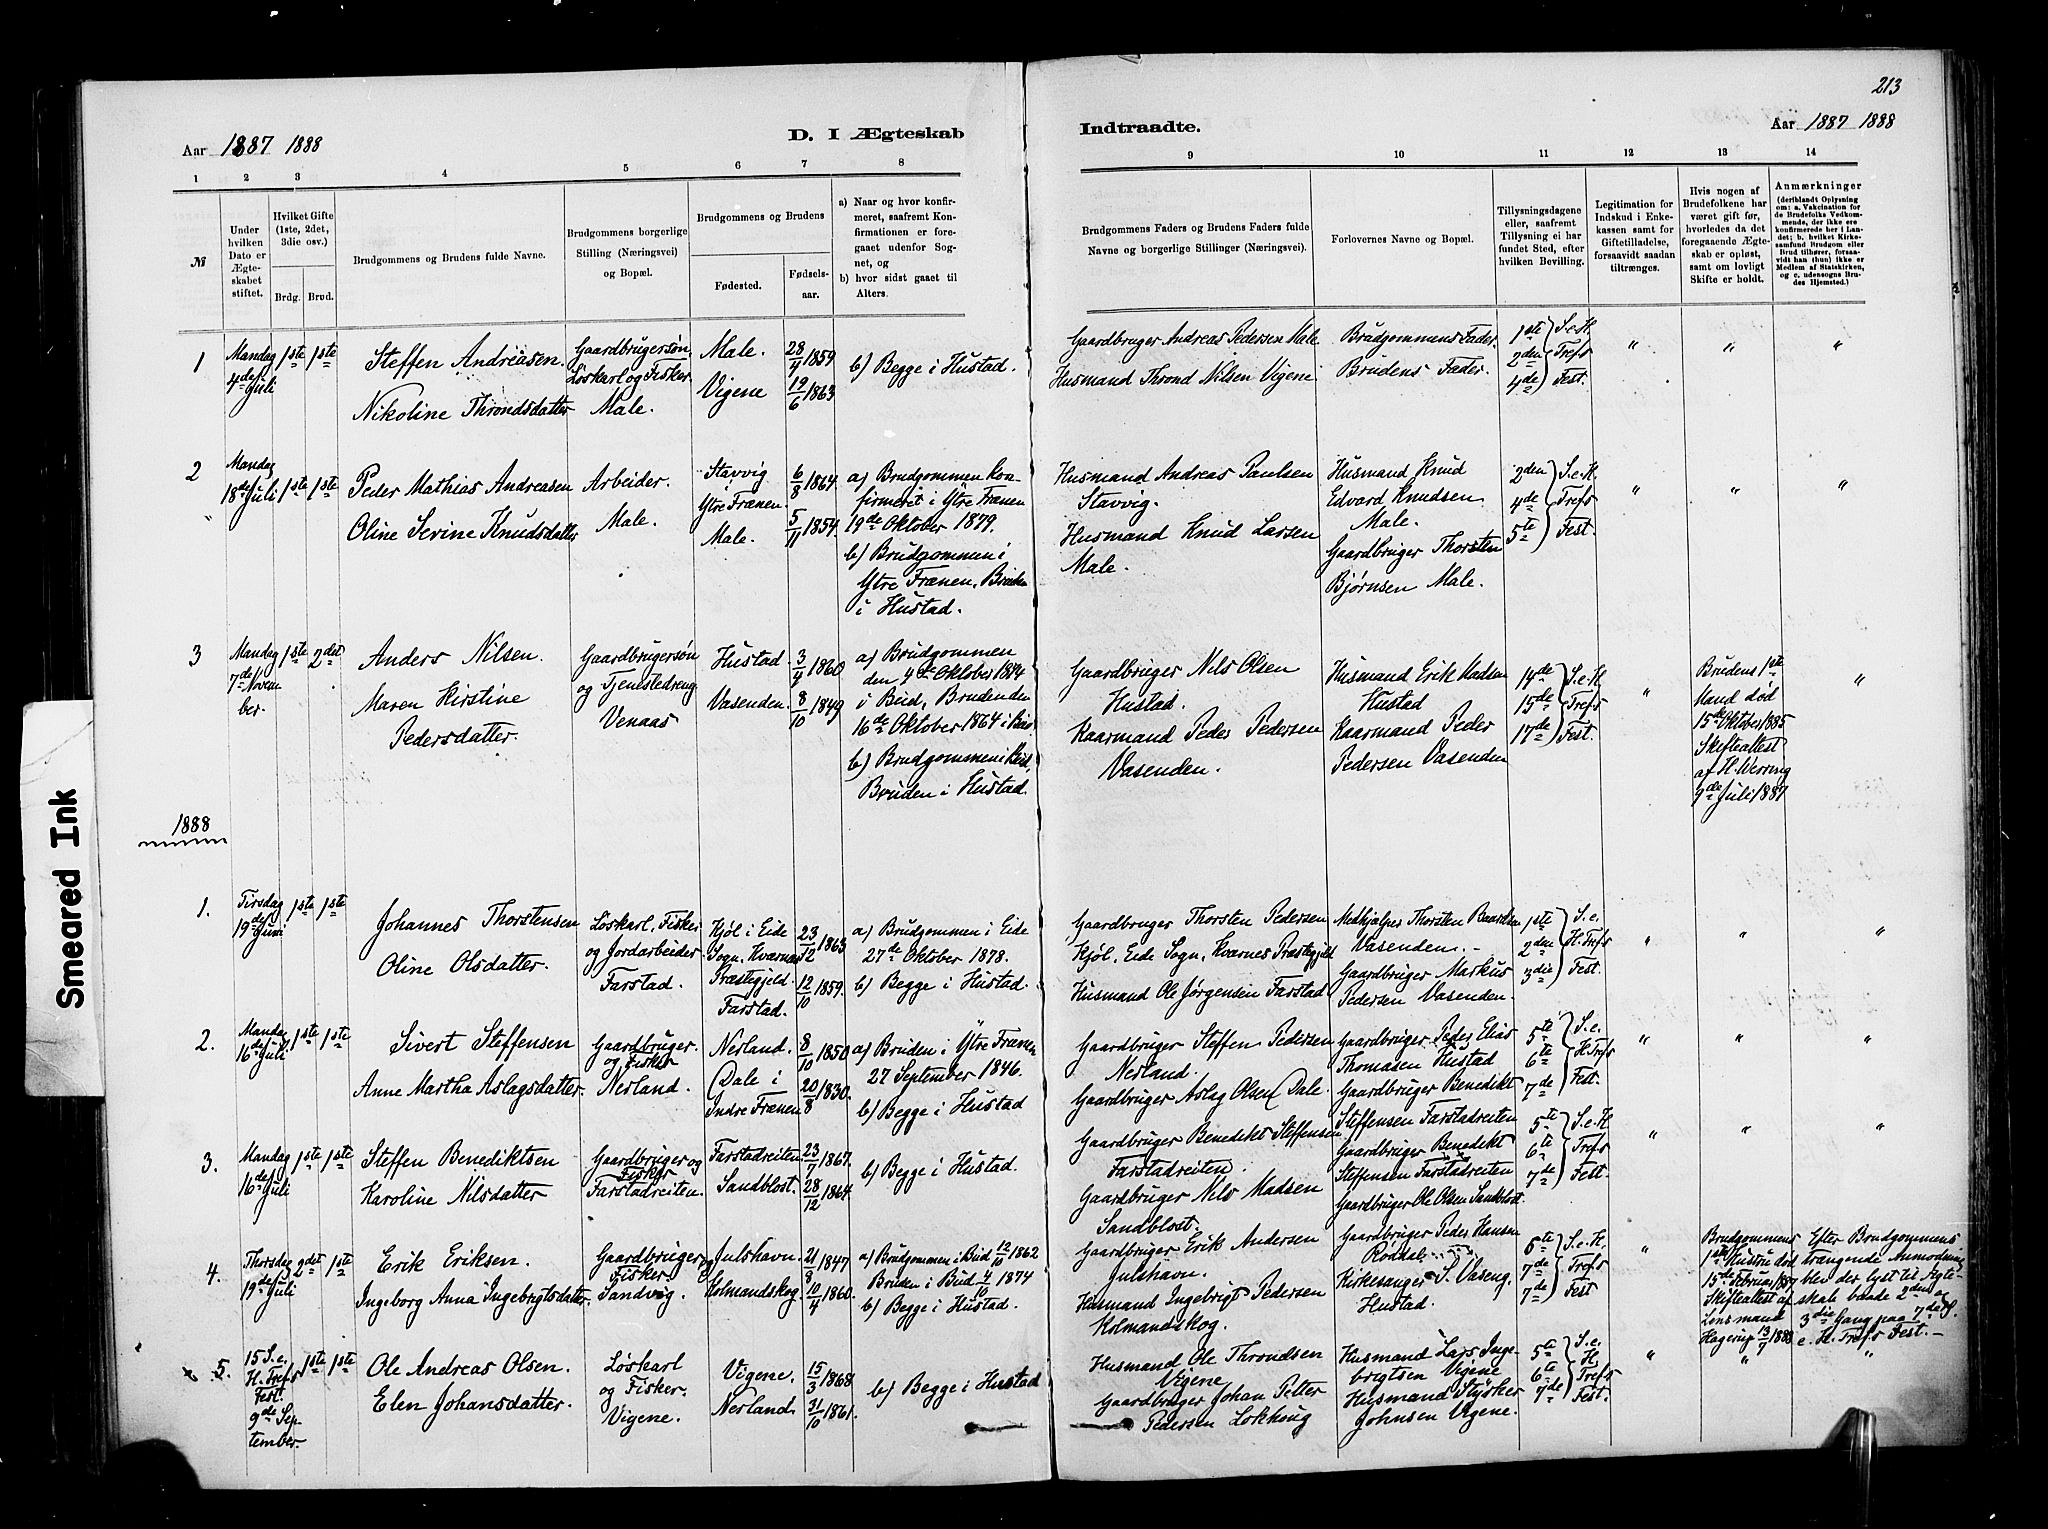 213
D. I Ægteskab
Indtraadte.
Aar 1887 1888
Aar 1887 1888
1 2 3 4 5 6 7 8
9 10 11 12 13 14
№
Under hvilken Dato er Ægteskabet stiftet.
Hvilket Gifte (1ste, 2det, 3die osv.)
Brdg. Brud.
Brudgommens og Brudens fulde Navne.
Brudgommens borgerlige Stilling (Næringsvei) og Bopæl.
Brudgommens og Brudens
Fødested.
Fødselsaar.
a) Naar og hvor konfirmeret, saafremt Konfirmationen er foregaaet udenfor Sognet, og
b) hvor sidst gaaet til Alters.
Brudgommens Faders og Brudens Faders fulde Navne og borgerlige Stillinger (Næringsvei).
Forlovernes Navne og Bopæl.
Tillysningsdagene eller, saafremt Tillysning ei har fundet Sted, efter hvilken Bevilling.
Legitimation for Indskud i Enkekassen samt for Giftetilladelse, forsaavidt saadan tiltrænges.
Hvis nogen af Brudefolkene har været gift før, hvorledes da det foregaaende Ægteskab er opløst, samt om lovligt Skifte er holdt.
Anmærkninger (deriblandt Oplysning om: a. Vakcination for de Brudefolks Vedkommende, der ikke ere konfirmerede her i Landet; b. hvilket Kirkesamfund Brudgom eller Brud tilhører, forsaavidt han (hun) ikke er Medlem af Statskirken, og c. udensogns Brudes Hjemsted.)
1 Mandag 4de Juli 1ste 1ste
Steffen Andreasen
Nikoline Throndsdatter
Gaardbrugersøn, Løskarl og Fisker Male.
Male. 28/4 1859
Vigene 19/6 1863
b) Begge i Hustad.
Gaardbruger Andreas Pedersen Male
Husmand Thrond Nilsen Vigene
Brudgommens Fader.
Brudens Fader.
1ste 2den 4de S. e. H. Trefs Fest.
" " "
2 Mandag 18de Juli 1ste 1ste
Peder Mathias Andreasen
Oline Serine Knudsdatter
Arbeider. Male.
Stavvig Ytre Frænen. 6/8 1864
Male. 5/11 1854
a) Brudgommen konfirmeret i Ytre Frænen 19de Oktober 1879.
b) Brudgommen i Ytre Frænen, Bruden i Hustad.
Husmand Andreas Paulsen Stavvig.
Husmand Knud Larsen Male.
Husmand Knud Edvard Knudsen Male.
Gaardbruger Thorsten Bjørnsen Male.
2den 4de 5te S. e. H. Trefs Fest.
" " "
3 Mandag 7de November. 1ste 2det
Anders Nilsen.
Maren Kirstine Pedersdatter.
Gaardbrugersøn og Tjenestedreng Venaas
Hustad. 3/4 1860
Vasenden. 8/10 1849
a) Brudgommen den 4de Oktober 1874 i Bud, Bruden den 16de Oktober 1864 i Bud.
b) Brudgommen i Bud, Bruden i Hustad.
Gaardbruger Nils Olsen Hustad.
Kaarmand Peder Pedersen Vasenden.
Husmand Erik Madsen Hustad
Kaarmand Peder Pedersen Vasenden
14de 15de 17de S. e. H. Trefs Fest.
"
Brudens 1ste Mand død 15de Oktober 1885 Skifteattest af H. Werring 9de Juli 1887
"
1888
1. Tirsdag 19de Juni 1ste 1ste
Johannes Thorstensen
Oline Olsdatter.
Løskarl, Fisker og Jordarbeider Farstad.
Kjøl i Eide Sogn, Kværnes Præstegjeld. 23/12 1863
Farstad. 12/10 1859.
a) Brudgommen i Eide 27de Oktober 1878.
b) Begge i Hustad.
Gaardbruger Thorsten Pedersen Kjøl, Eide Sogn, Kværnes Præstegjeld
Husmand Ole Jørgensen Farstad
Medhjælper Thorsten Baardsen Vasenden.
Gaardbruger Markus Pedersen Vasenden.
1ste 2den 3die S. e. H. Trefs Fest.
" " "
2. Mandag 16de Juli 1ste 1ste
Sivert Steffensen
Anne Martha Aslagsdatter.
Gaardbruger og Fisker Nerland.
Nerland. 8/10 1850
Dale i Indre Frænen 20/8 1830.
a) Bruden i Ytre Frænen 27 September 1846.
b) Begge i Hustad
Gaardbruger Steffen Pedersen Nerland.
Gaardbruger Aslag Olsen Dale.
Gaardbruger Peder Elias Thomasen Hustad
Gaardbruger Benedikt Steffensen Farstadreiten
5te 6te 7de S. e. H. Trefs Fest.
" " "
3. Mandag 16de Juli 1ste 1ste
Steffen Benediktsen
Karoline Nilsdatter
Gaardbruger og Fisker Farstadreiten.
Farstadreiten. 23/7 1867.
Sandblost. 28/12 1864
b) Begge i Hustad.
Gaardbruger Benedikt Steffensen Farstadreiten.
Gaardbruger Nils Madsen Sandblost.
Gaardbruger Benedikt Steffensen Farstadreiten
Gaardbruger Ole Olsen Sandblost.
5te 6te 7de S. e. H. Trefs Fest.
" " "
4. Thorsdag 19de Juli 2det 1ste
Erik Eriksen.
Ingeborg Anna Ingebrigtsdatter
Gaardbruger og Fisker Sandvig.
Julshavn. 21/8 1847
Holmandskog. 10/4 1860.
a) Brudgommen i Bud 12/10 1862 Bruden i Bud 4/10 1874
b) Begge i Hustad.
Gaardbruger Erik Andersen Julshavn.
Husmand Ingebrigt Pedersen Holmandskog.
Gaardbruger Peder Hansen Røddal.
Kirkesanger S. Vaseng. Hustad.
6te 7de 7de S. e. H. Trefs Fest
"
Brudgommens 1ste Hustru død 15de Februar 1887 Skifteattest af Lensmand Hagerup 13/7 1888
Efter Brudgommens trængende Anmodning blev der lyst til Ægteskale baade 2den og 3die Gang paa 7de S. e. H. Trefs Fest.
5. 15 S. e. H. Trefs Fest. 9de September. 1ste 1ste
Ole Andreas Olsen.
Elen Johansdatter.
Løskarl og Fisker. Vigene.
Vigene. 15/3 1868
Nerland. 31/10 1861.
b) Begge i Hustad
Husmand Ole Throndsen Vigene
Gaardbruger Johan Petter Pedersen Lokhoug
Husmand Lars Ingebrigtsen Vigene
Husmand Styrker Johnsen Vigene.
5te 6te 7de S. e. H. Trefs Fest.
" " "
Smeared Ink